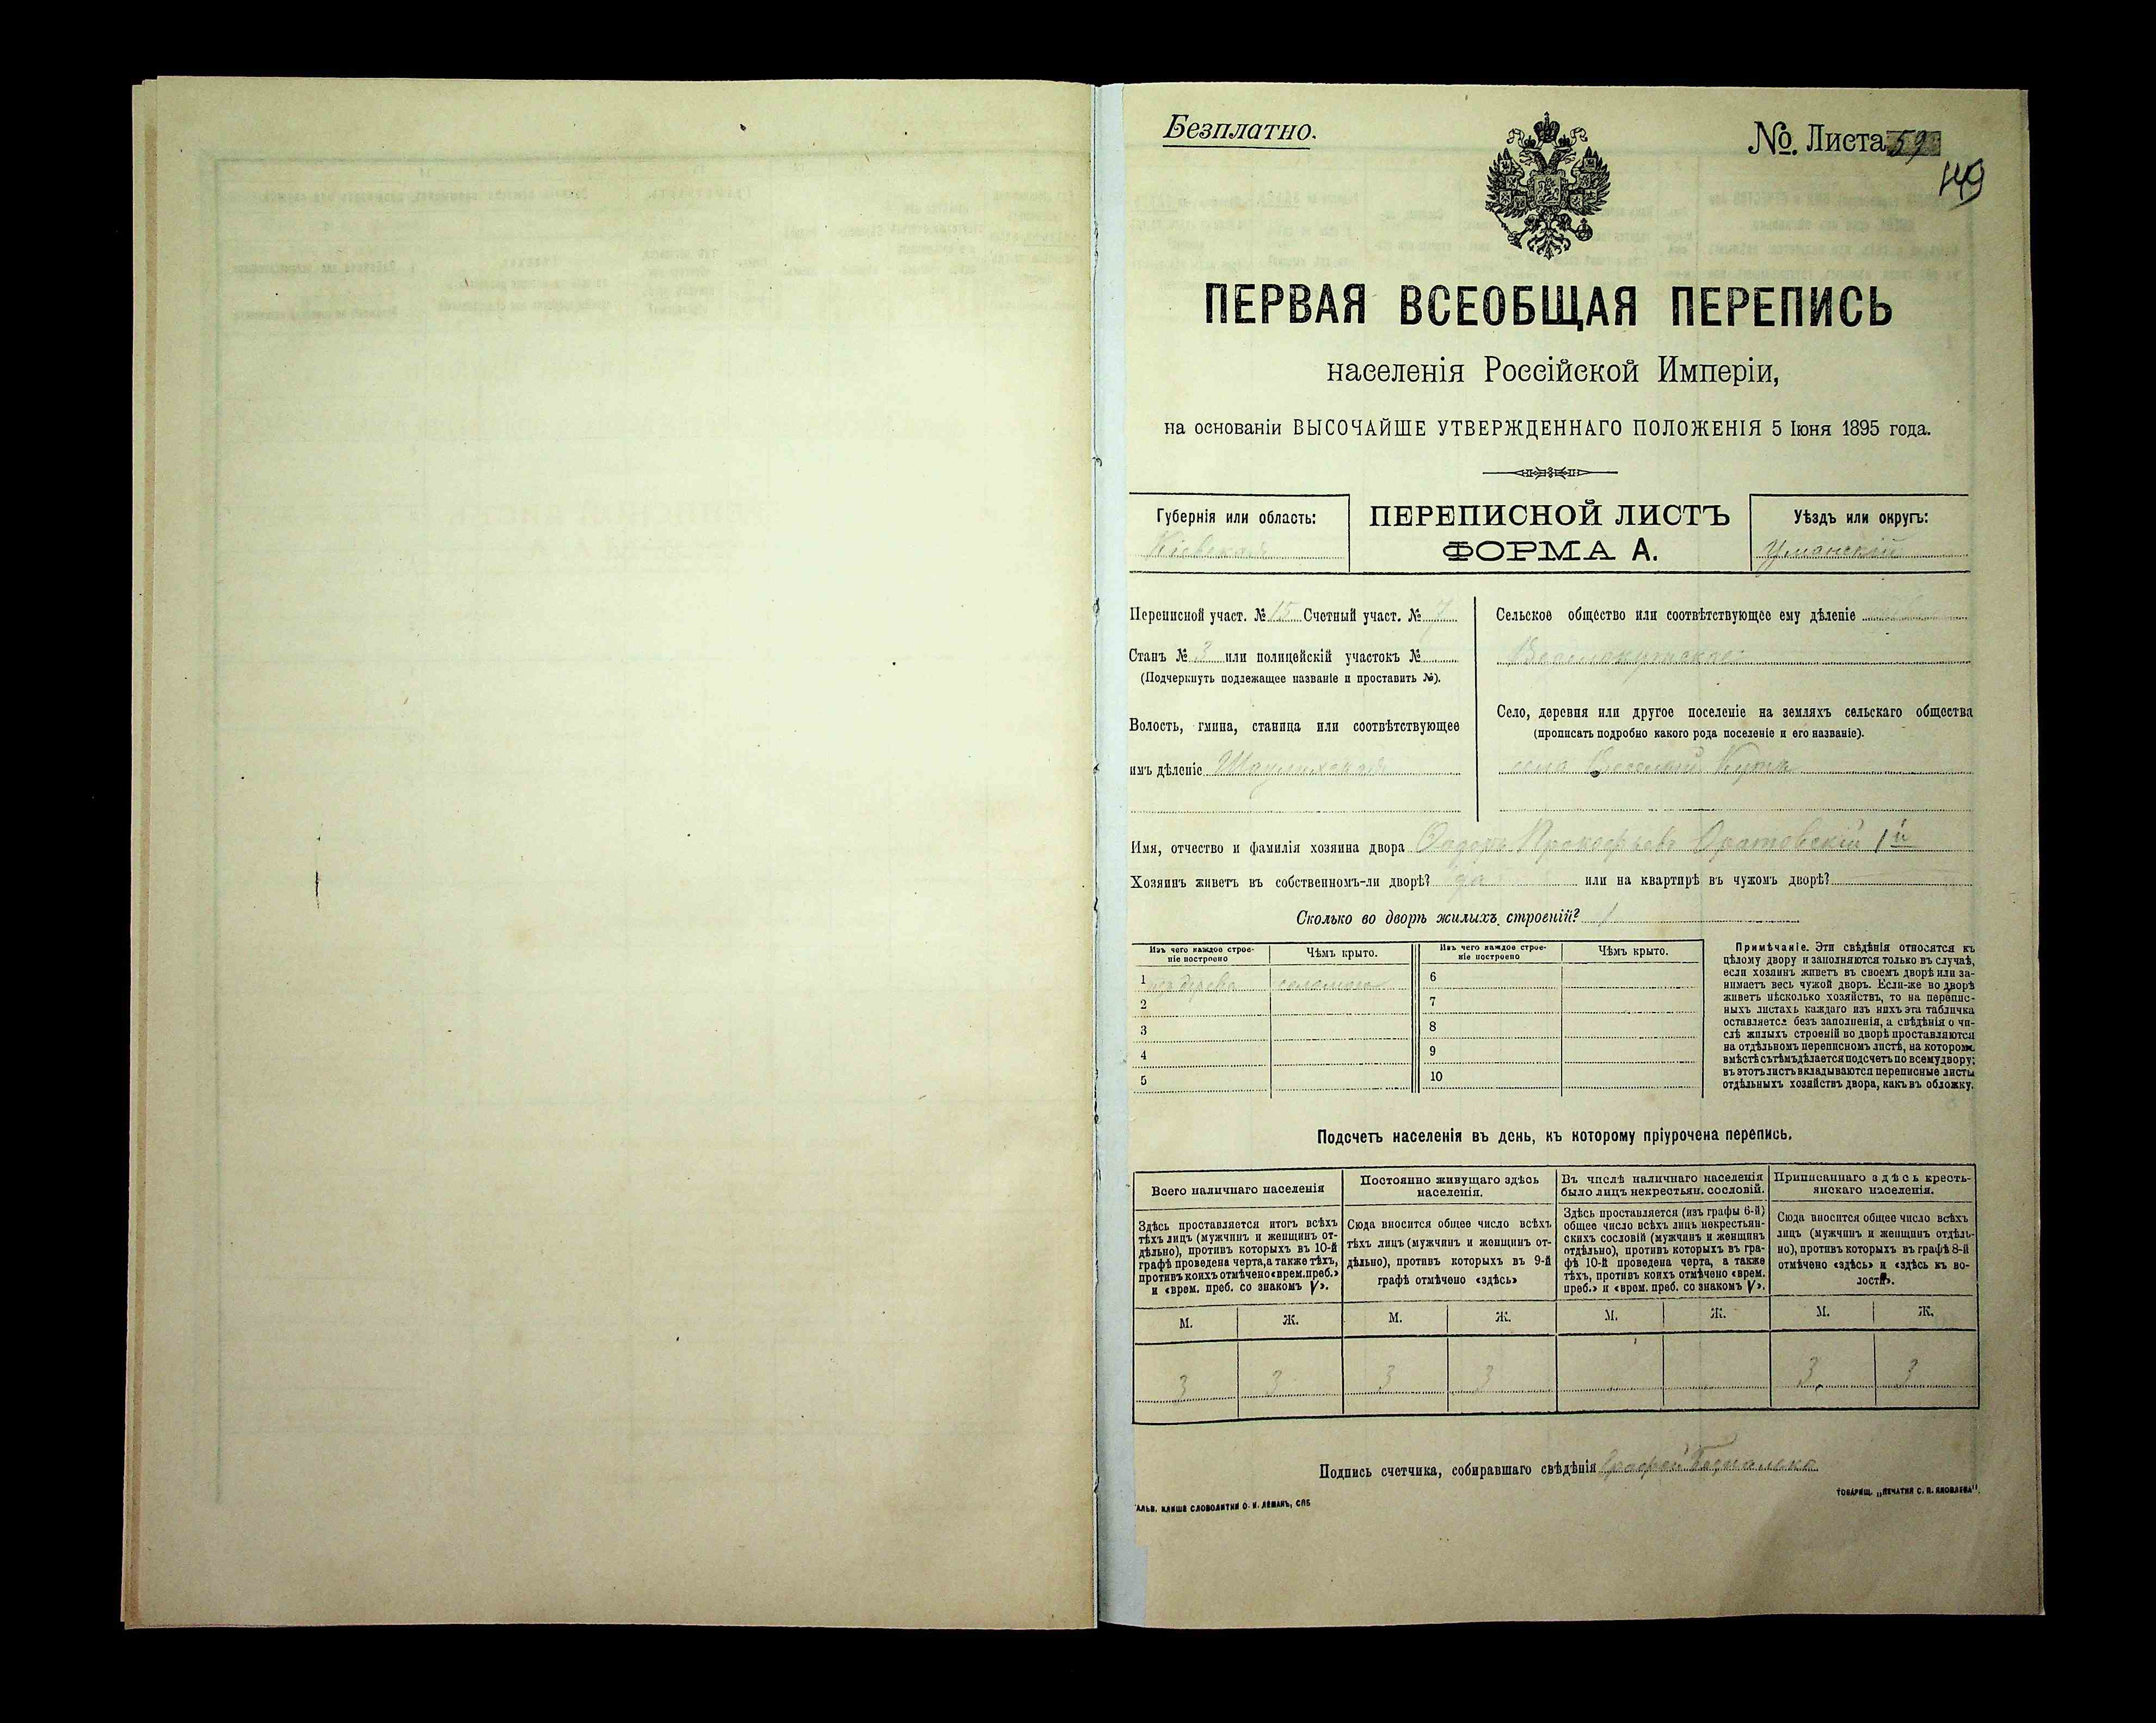 Безплатно.
№. Листа 59
149
ПЕРВАЯ ВСЕОБЩАЯ ПЕРЕПИСЬ
населенія Россійской Имперіи,
на основаніи ВЫСОЧАЙШЕ УТВЕРЖДЕННАГО ПОЛОЖЕНІЯ 5 Іюня 1895 года.
Губернія или область:
Кіевская
ПЕРЕПИСНОЙ ЛИСТЪ
ФОРМА А.
Уѣздъ или округъ:
Уманскій
Переписной участ. № 15 Счетный участ. № 7
Станъ № 3 или полицейскій участокъ №
(Подчеркнуть подлежащее названіе и проставить №).
Волость, гмина, станица или соотвѣтствующее
имъ дѣленіе
Сельское общество или соотвѣтствующее ему дѣленіе
Село, деревня или другое поселеніе на земляхъ сельскаго общества
(прописать подробно какого рода поселеніе и его названіе).
село Веселый Кутъ
Имя, отчество и фамилія хозяина двора Ѳедоръ Прокофьевъ Оратовскій 1й
Хозяинъ живетъ въ собственномъ-ли дворѣ? да или на квартирѣ въ чужомъ дворѣ?
Сколько во дворѣ жилыхъ строеній? 1
Изъ чего каждое строе-
ніе построено
Чѣмъ крыто.
Изъ чего каждое строе-
ніе построено
Чѣмъ крыто.
1 изъ дерева соломою
2
3
4
5
6
7
8
9
10
Примѣчаніе. Эти свѣдѣнія относятся къ
цѣлому двору и заполняются только въ случаѣ,
если хозяинъ живетъ въ своемъ дворѣ или за-
нимаетъ весь чужой дворъ. Если-же во дворѣ
живетъ нѣсколько хозяйствъ, то на перепис-
ныхъ листахъ каждаго изъ нихъ эта табличка
оставляется безъ заполненія, а свѣдѣнія о чи-
слѣ жилыхъ строеній во дворѣ проставляются
на отдѣльномъ переписномъ листѣ, на которомъ
вмѣстѣ съ тѣмъ дѣлается подсчетъ по всему двору;
въ этотъ листъ вкладываются переписные листы
отдѣльныхъ хозяйствъ двора, какъ въ обложку.
Подсчетъ населенія въ день, къ которому пріурочена перепись.
Всего наличнаго населенія
Здѣсь проставляется итогъ всѣхъ
тѣхъ лицъ (мужчинъ и женщинъ от-
дѣльно), противъ которыхъ въ 10-й
графѣ проведена черта, а также тѣхъ,
противъ коихъ отмѣчено «врем. преб.»
и «врем. преб. со знакомъ V».
Постоянно живущаго здѣсь
населенія.
Сюда вносится общее число всѣхъ
тѣхъ лицъ (мужчинъ и женщинъ от-
дѣльно), противъ которыхъ въ 9-й
графѣ отмѣчено «здѣсь»
Въ числѣ наличнаго населенія
было лицъ некрестьян. сословій.
Здѣсь проставляется (изъ графы 6-й)
общее число всѣхъ лицъ некрестьян-
скихъ сословій (мужчинъ и женщинъ
отдѣльно), противъ которыхъ въ гра-
фѣ 10-й проведена черта, а также
тѣхъ, противъ коихъ отмѣчено «врем.
преб.» и «врем. преб. со знакомъ V».
Приписаннаго здѣсь кресть-
янскаго населенія.
Сюда вносится общее число всѣхъ
лицъ (мужчинъ и женщинъ отдѣль-
но), противъ которыхъ въ графѣ 8-й
отмѣчено «здѣсь» и «здѣсь къ во-
лости».
М. Ж. М. Ж. М. Ж. М. Ж.
3 3 3 3 3 3
Подпись счетчика, собиравшаго свѣдѣнія
ГАЛЬВ. КЛИШЕ СЛОВОЛИТНИ О. И. ЛЕМАНЪ, СПБ
ТОВАРИЩ. „ПЕЧАТНЯ С. П. ЯКОВЛЕВА".